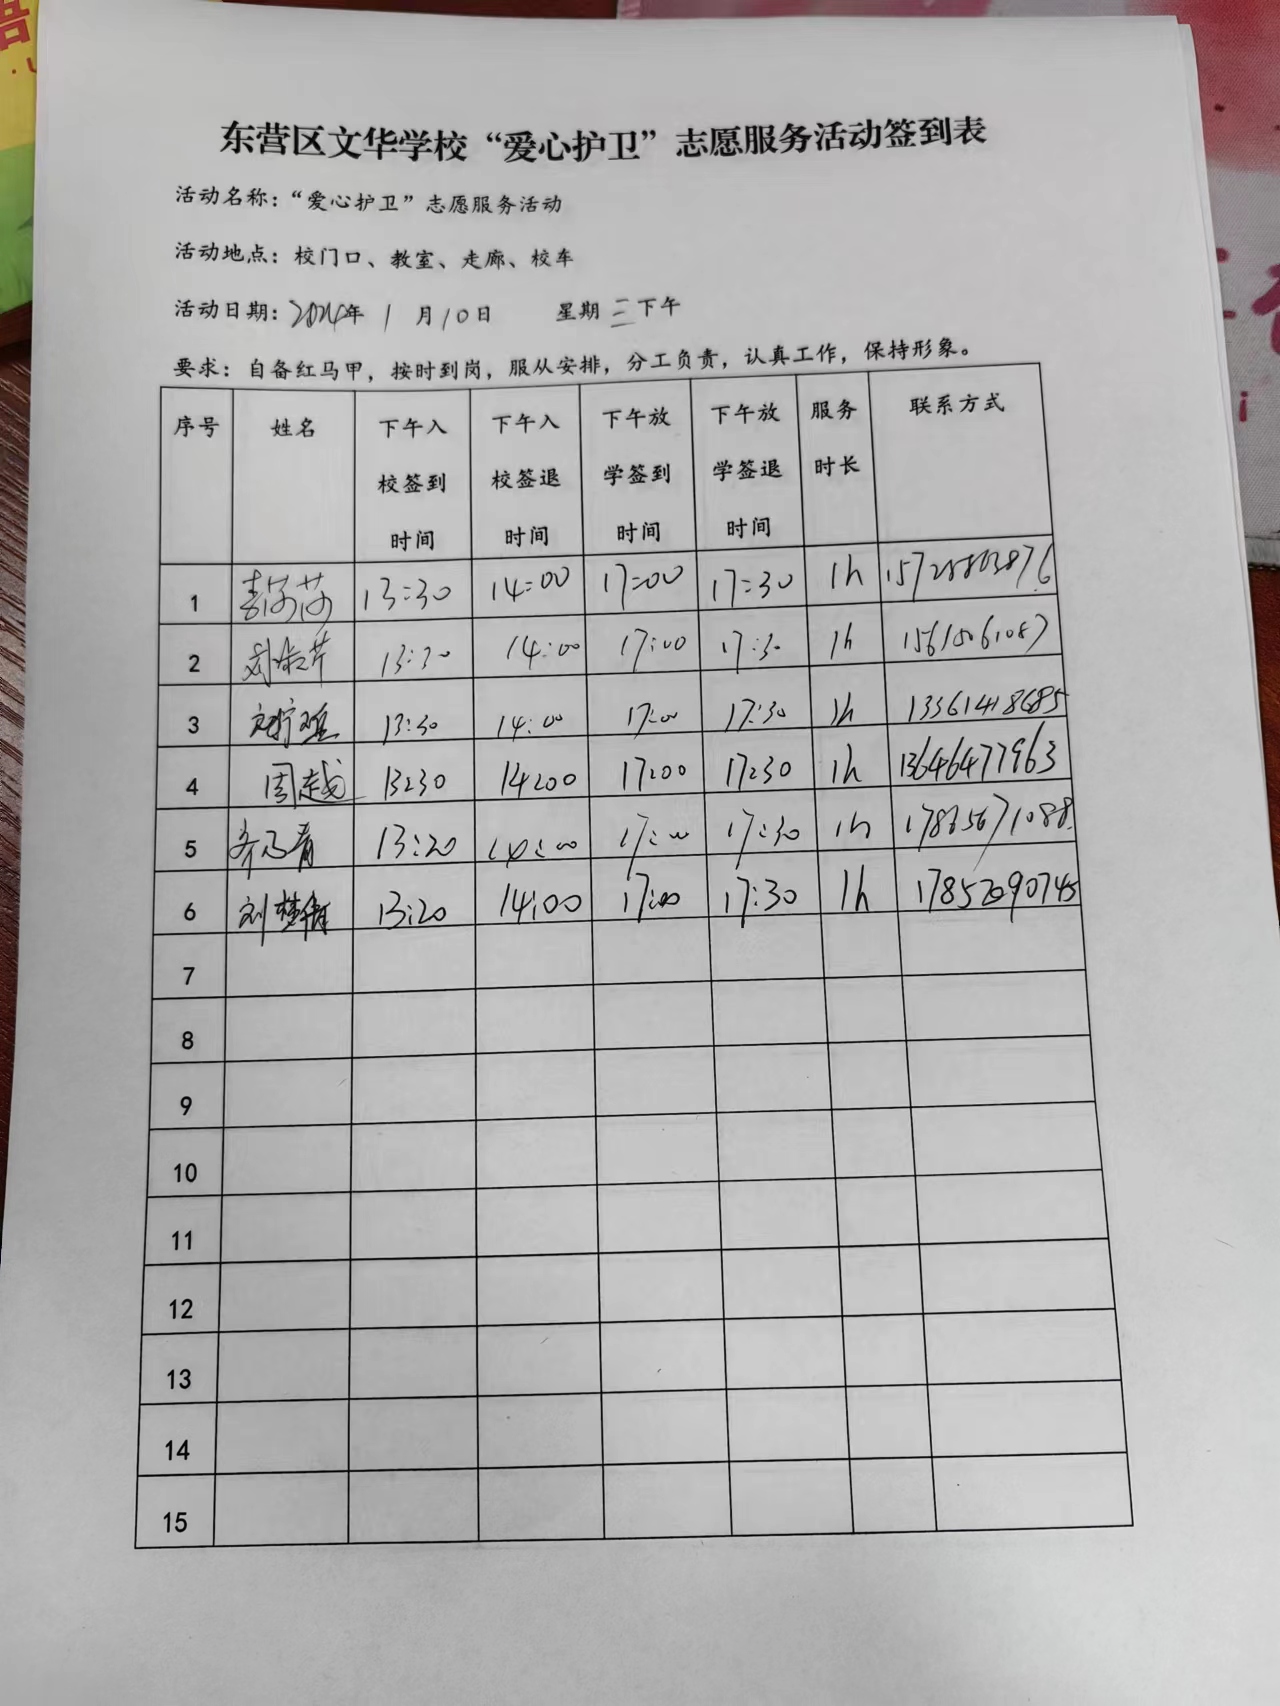 东营区文华学校“爱心护卫”志愿服务活动签到表
活动名称：“爱心护卫”志愿服务活动
活动地点：校门口、教室、走廊、校车
活动日期：2024年 1 月 10 日 星期 三 下午
要求：自备红马甲，按时到岗，服从安排，分工负责，认真工作，保持形象。
序号 姓名 下午入校签到时间 下午入校签退时间 下午放学签到时间 下午放学签退时间 服务时长 联系方式
1 13:30 14:00 17:00 17:30 1h
2 13:30 14:00 17:00 17:30 1h 15615061087
3 13:30 14:00 17:00 17:30 1h 13361418685
4 周越 13:30 14:00 17:00 17:30 1h 13646477963
5 齐乃青 13:20 14:00 17:00 17:30 1h 17865671088
6 刘梦倩 13:20 14:00 17:00 17:30 1h 17852090745
7
8
9
10
11
12
13
14
15